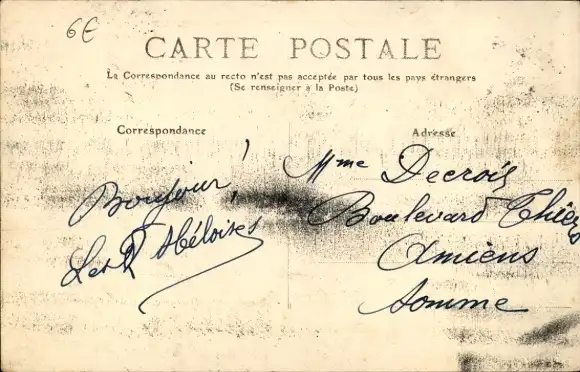 6€
CARTE POSTALE
La Correspondance au recto n'est pas acceptée par tous les pays étrangers
(Se renseigner à la Poste)
Correspondance
Adresse
Bonjour !
Les Héloises
Mme Decroix
Boulevard Thiers
Amiens
Somme